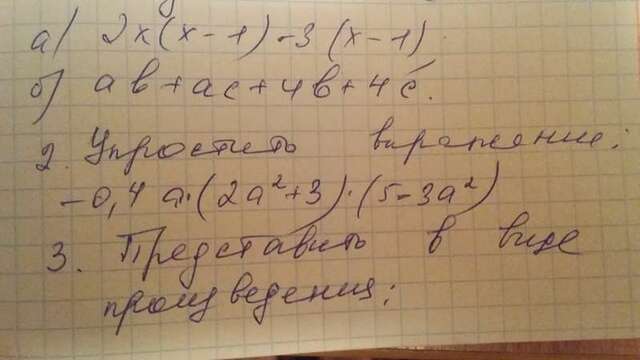 а) 2x(x-1)-3(x-1).
б) ab+ac+4b+4c.
2. Упростить выражение:
-0,4a·(2a²+3)·(5-3a²)
3. Представить в виде
произведения: